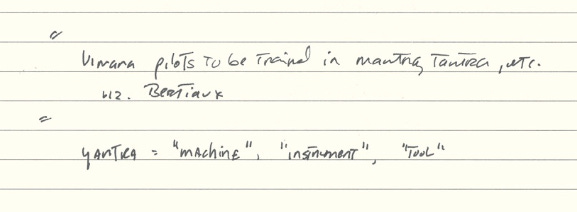 "
Vimana pilots to be trained in mantra, tantra, etc.
viz. Bertiaux
=
YANTRA = "MACHINE", "INSTRUMENT", "TOOL"